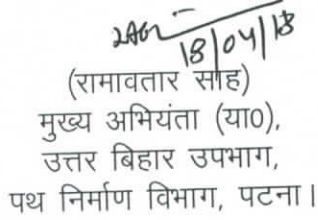 18/04/18
(रामावतार साह)
मुख्य अभियंता (या०),
उत्तर बिहार उपभाग,
पथ निर्माण विभाग, पटना।